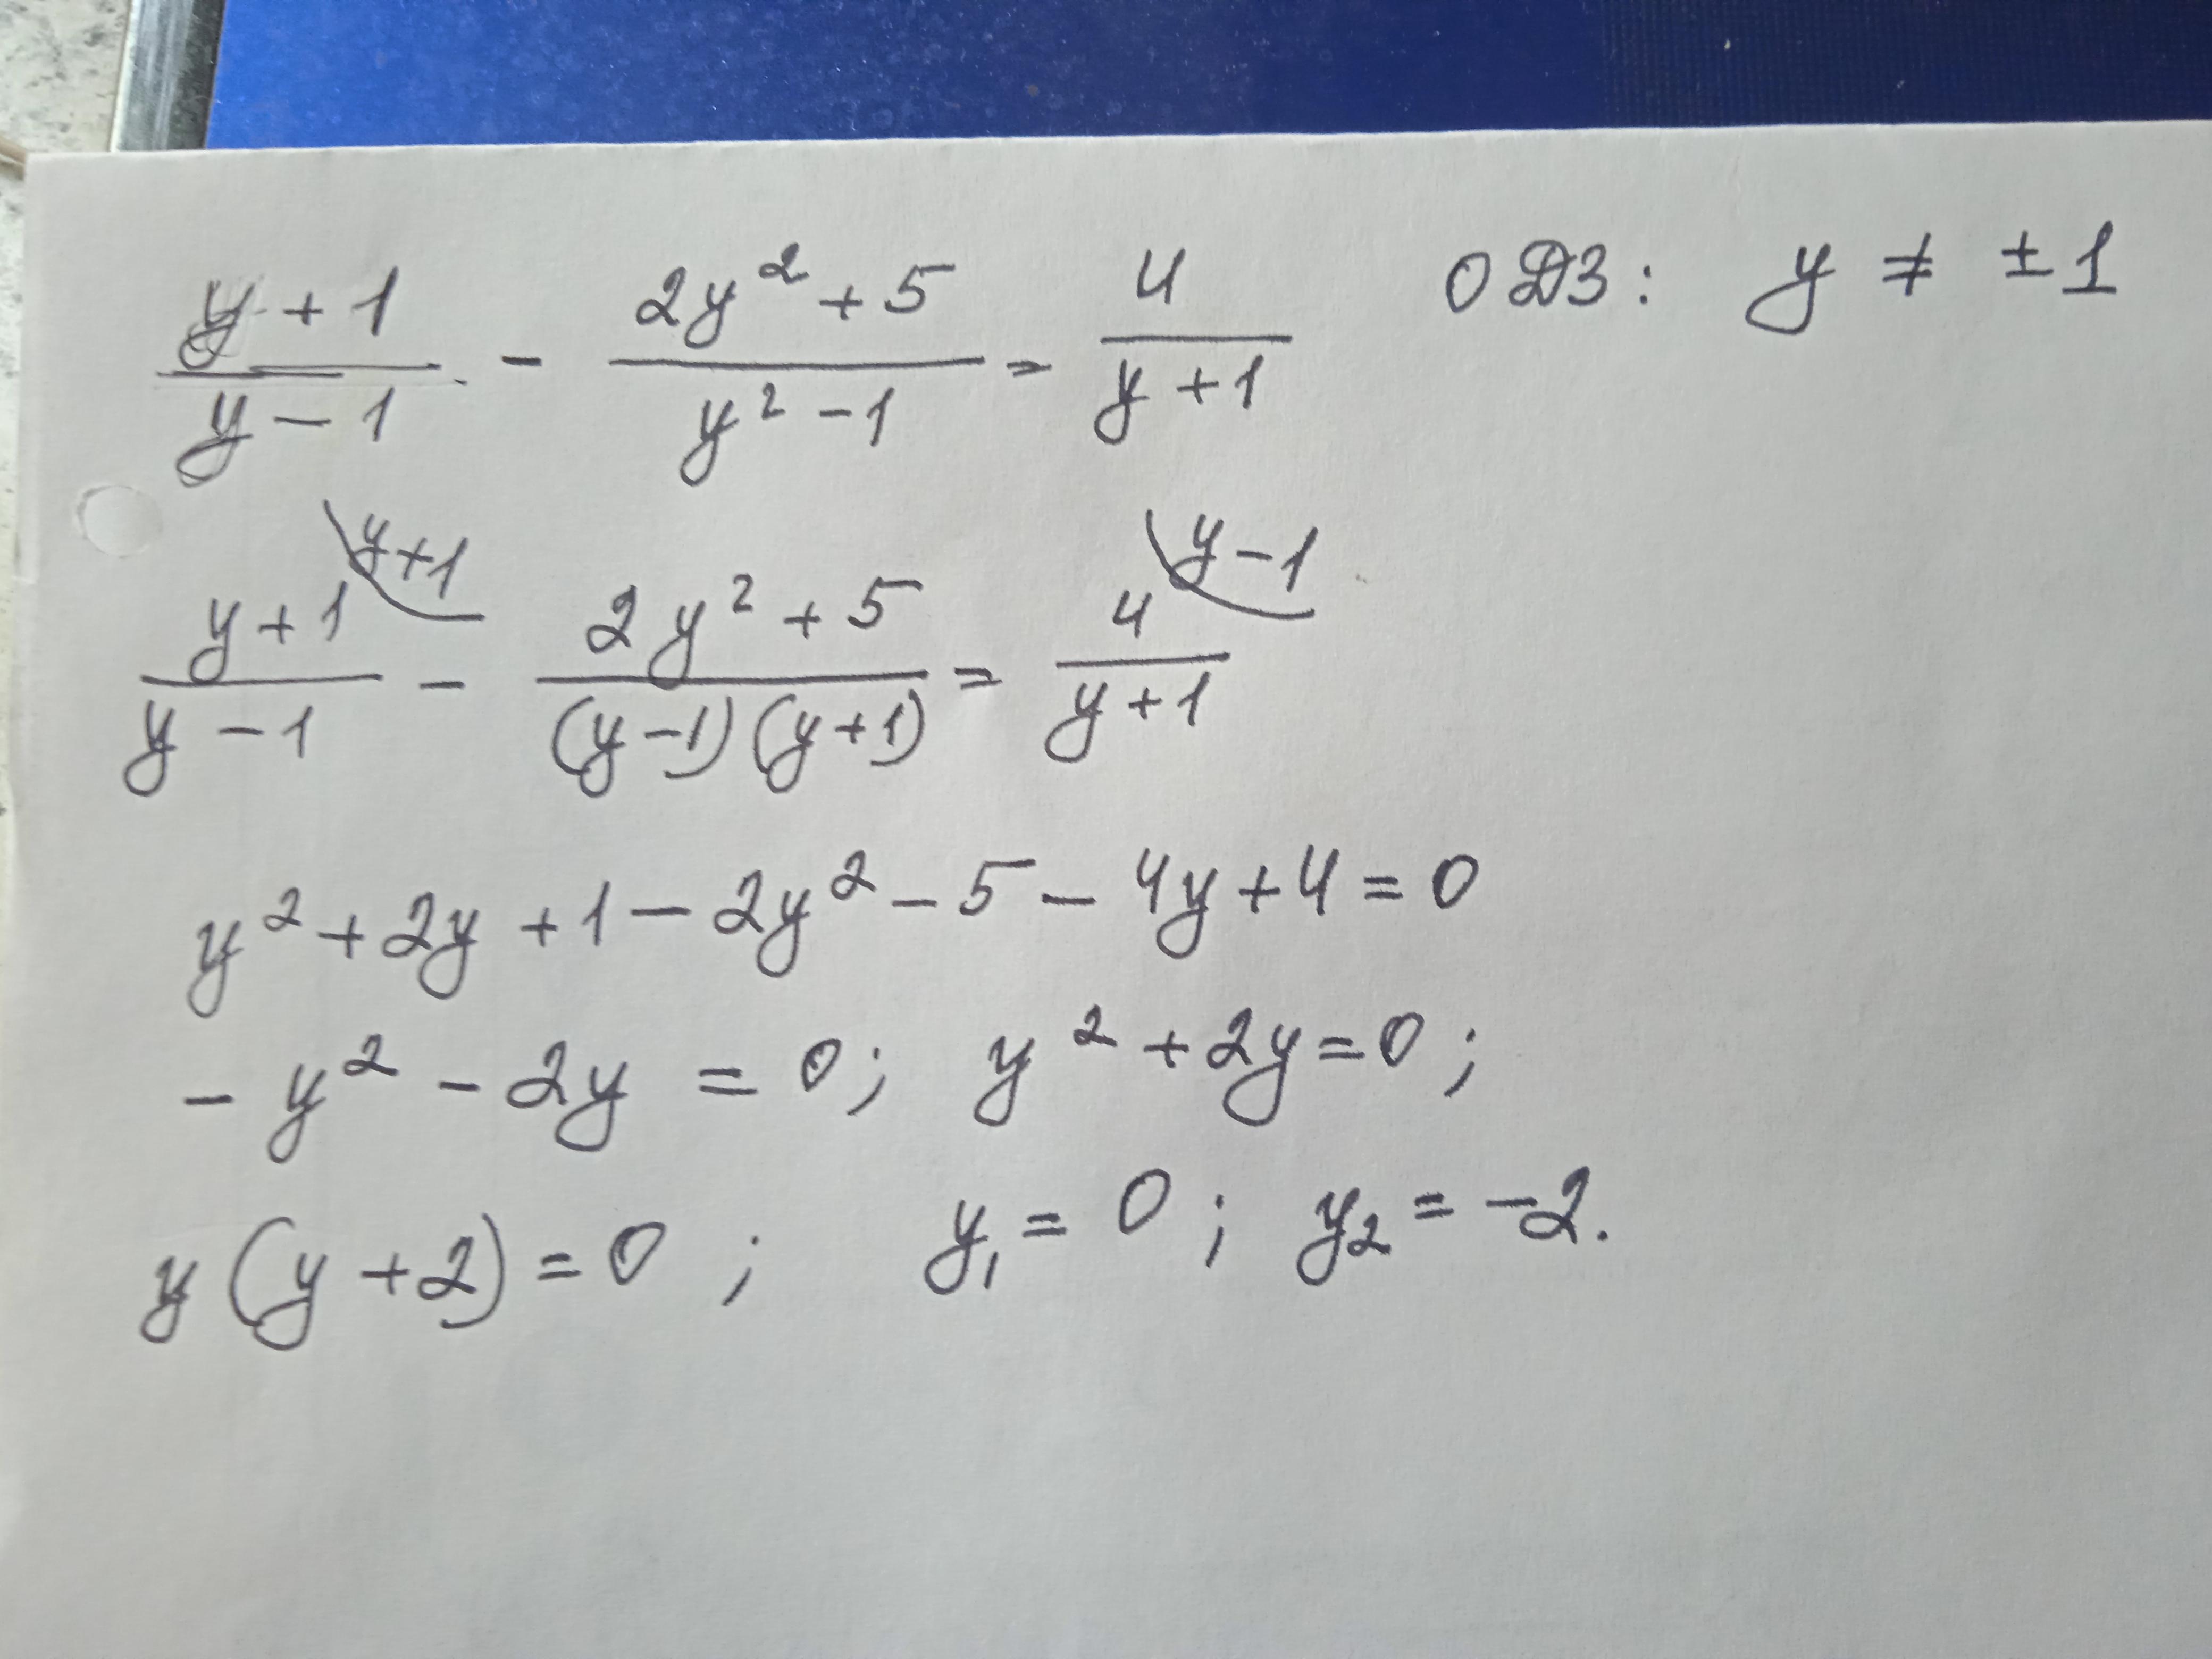 (y + 1)/(y - 1) - (2y² + 5)/(y² - 1) = 4/(y + 1) ОДЗ: y ≠ ± 1
(y + 1)/(y - 1) \y+1 - (2y² + 5)/((y - 1)(y + 1)) = 4/(y + 1) \y-1
y² + 2y + 1 - 2y² - 5 - 4y + 4 = 0
- y² - 2y = 0; y² + 2y = 0;
y (y + 2) = 0; y₁ = 0; y₂ = -2.